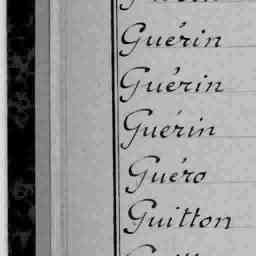 Guérin
Guérin
Guérin
Guéro
Guitton